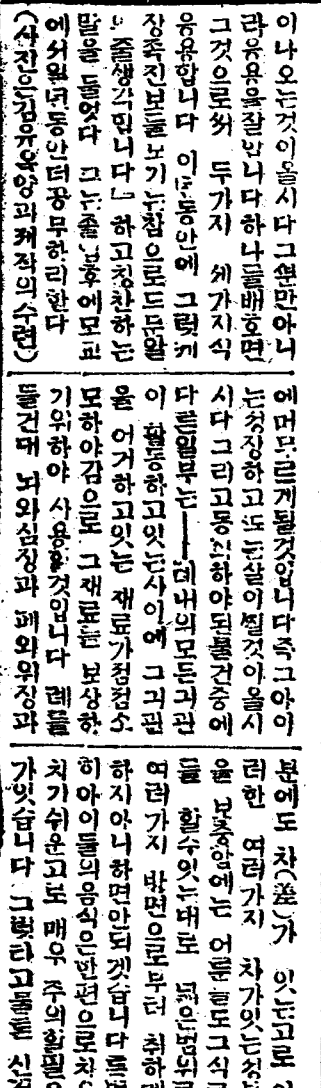 이나오는것이올시다그뿐만아니
라응용을잘합니다하나들배호면
그것으로써 두가지 세가지식
응용합니다 이 동안에 그럿케
장족진보들노기는참으로드문일
줄생각합니다」 하고칭찬하는
말을 들엇다 그는졸 후에모교
에서 년동안더공부하리한다
(사진은김유옥양과 작의수련)
에머므르게될것입니다즉그아이
는성장하고 는살이찔것이올시
시다그리고동 하야된물건중에
다른일부는——테내의모든긔관
이 활동하고잇는사이에 그긔관
을 어거하고잇는 재료가점점소
모하야감으로 그재료는 보상하
기위하야 사용할것입니다 례들
들건대 뇌와심장과 폐와위장과
분에도 차(差)가 잇는고로
러한 여러가지 차가잇는
을 보충함에는 어룬 도그식
들 할수잇는대로 넓은범위
여러가지 방면으로부터 취하
하지아니하면안되겟습니다
히아이들의음식은한편으로
치기쉬운고로 매우 주의할필
가잇습니다 그럿타고물론